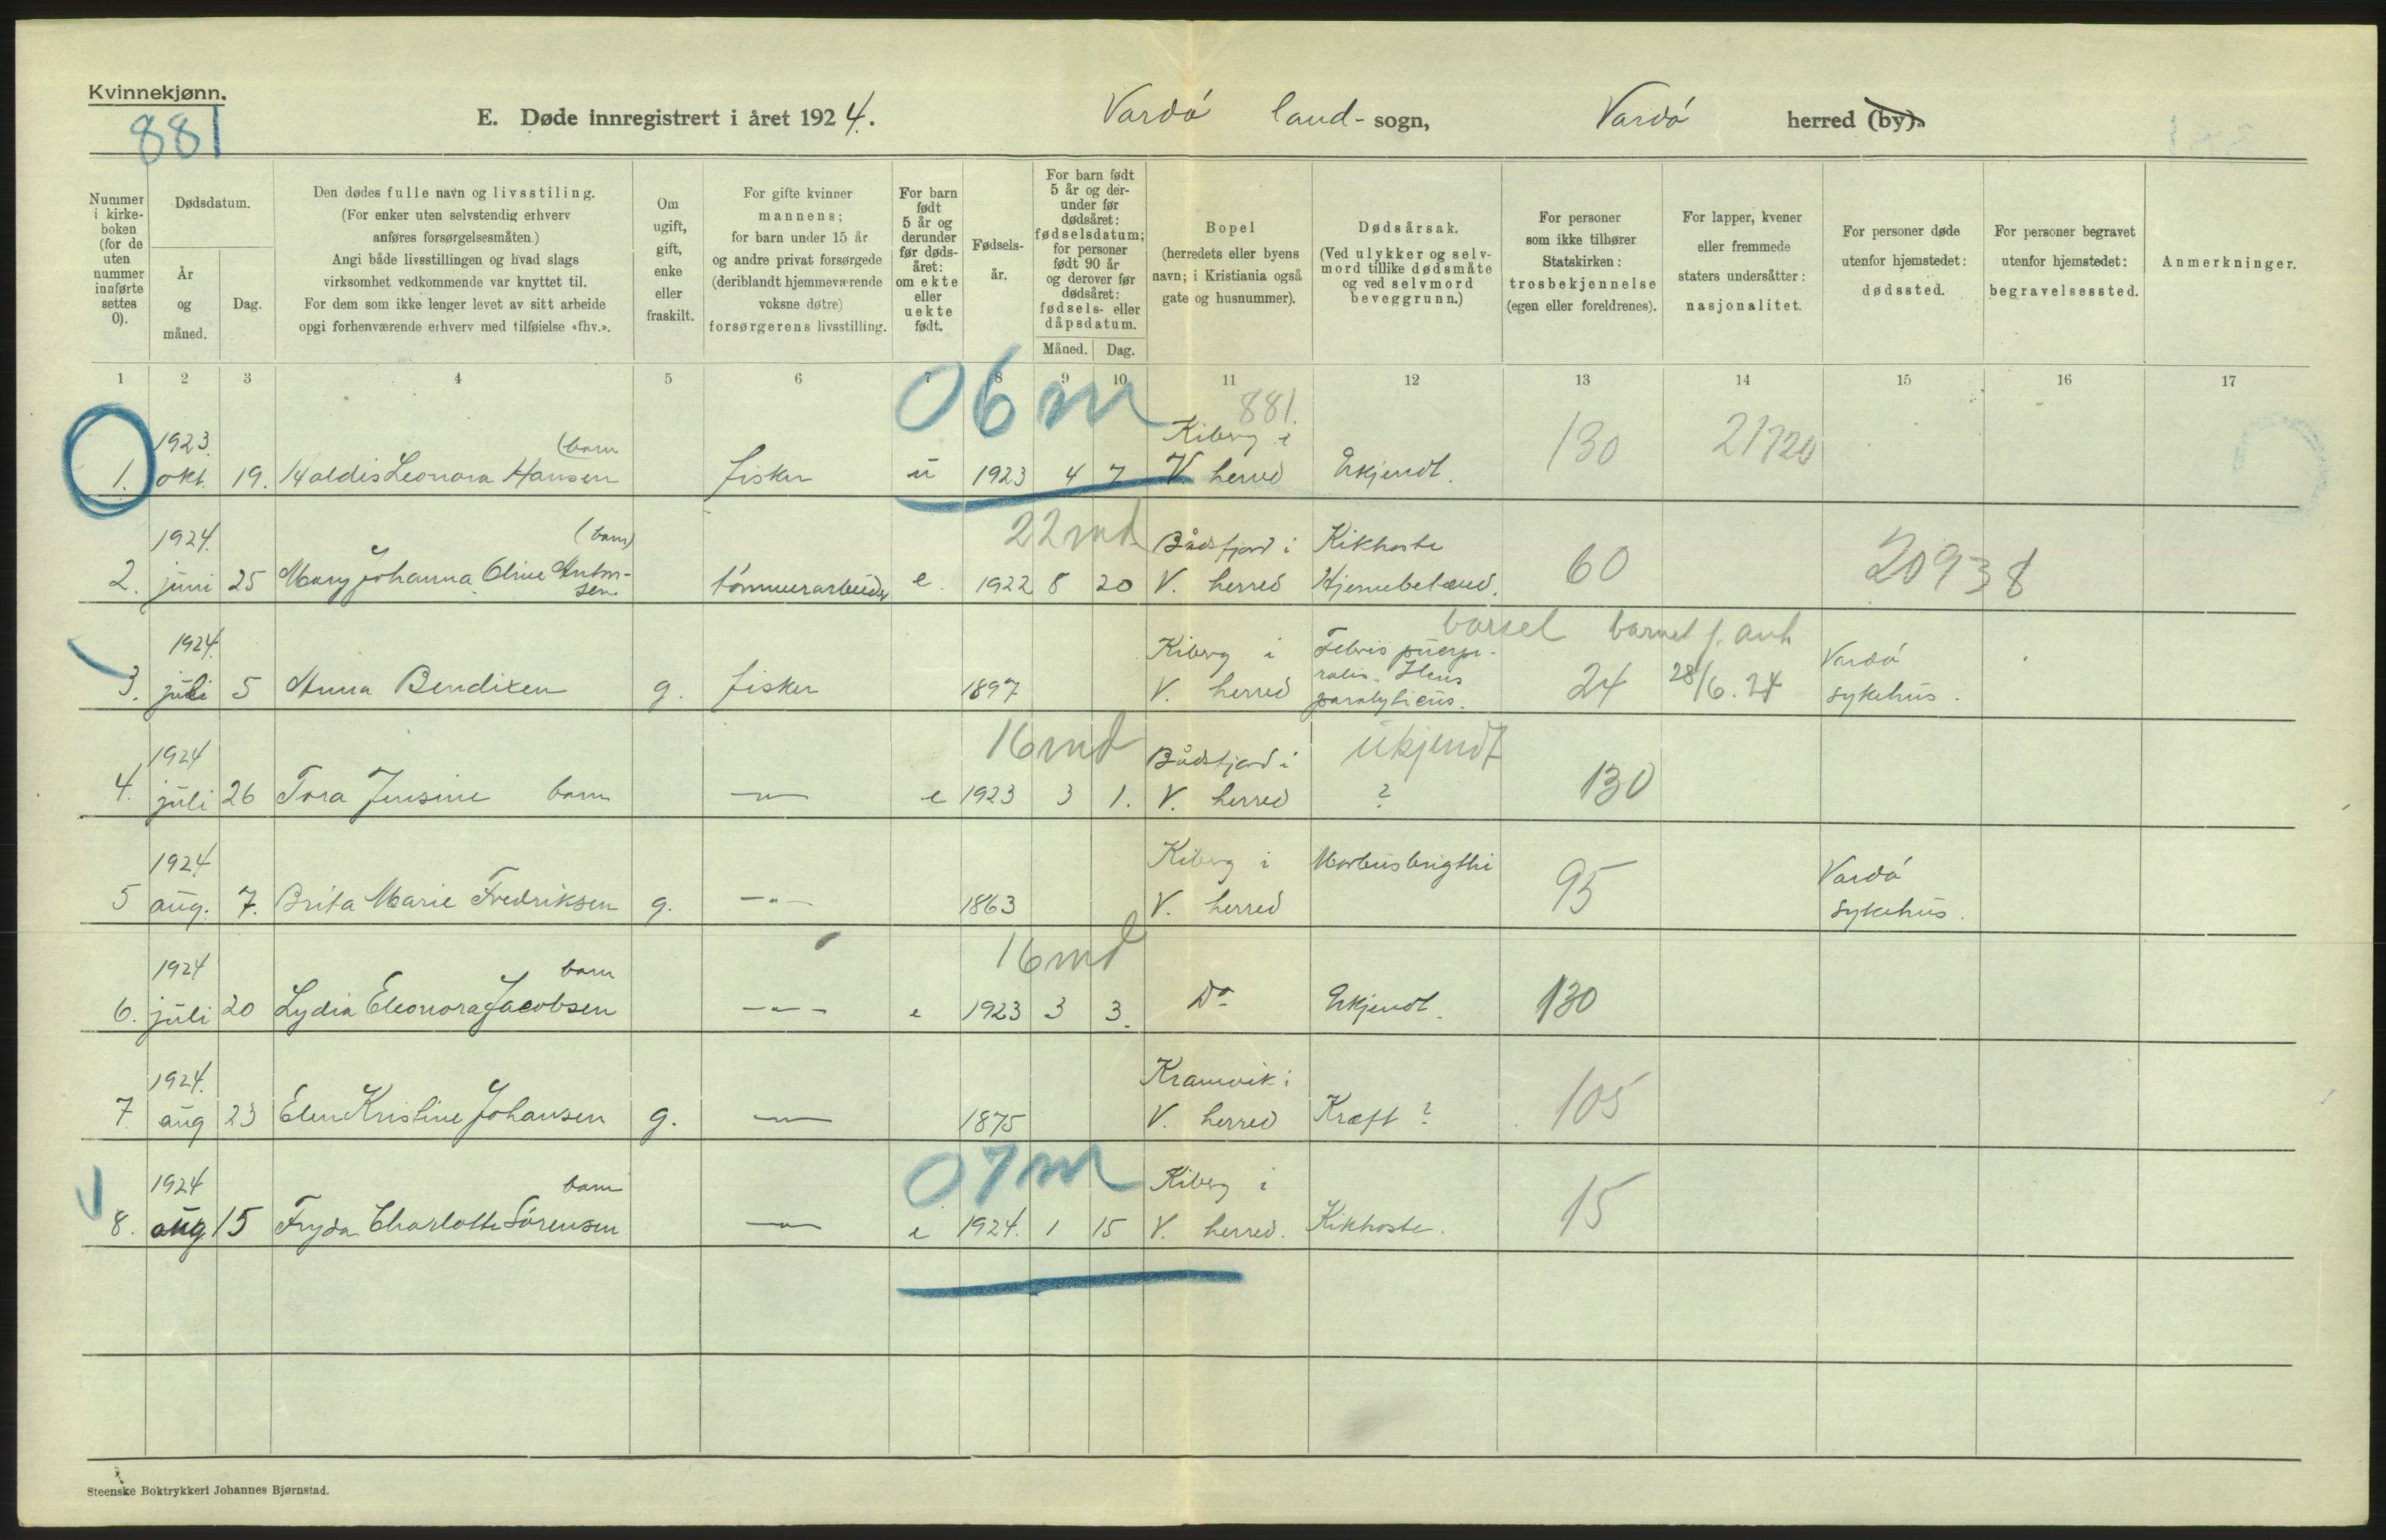 Kvinnekjønn.
881
E. Døde innregistrert i året 1924.
Vardø land-sogn,
Vardø herred (by).
Nummer i kirke-boken (for de uten nummer innførte settes 0).
Dødsdatum.
År og måned.
Dag.
Den dødes fulle navn og livsstiling.
(For enker uten selvstendig erhverv
anføres forsørgelsesmåten.)
Angi både livsstillingen og hvad slags
virksomhet vedkommende var knyttet til.
For dem som ikke lenger levet av sitt arbeide
opgi forhenværende erhverv med tilføielse «fhv.».
Om ugift, gift, enke eller fraskilt.
For gifte kvinner
mannens;
for barn under 15 år
og andre privat forsørgede
(deriblandt hjemmeværende
voksne døtre)
forsørgerens livsstilling.
For barn født 5 år og derunder før døds-året: om ekte eller uekte født.
Fødsels-år.
For barn født 5 år og der-under før dødsåret: fødselsdatum; for personer født 90 år og derover før dødsåret: fødsels- eller dåpsdatum.
Måned. Dag.
Bopel
(herredets eller byens
navn; i Kristiania også
gate og husnummer).
Dødsårsak.
(Ved ulykker og selv-
mord tillike dødsmåte
og ved selvmord
beveggrunn.)
For personer
som ikke tilhører
Statskirken:
trosbekjennelse
(egen eller foreldrenes).
For lapper, kvener
eller fremmede
staters undersåtter:
nasjonalitet.
For personer døde
utenfor hjemstedet:
dødssted.
For personer begravet
utenfor hjemstedet:
begravelsessted.
Anmerkninger.
1 2 3 4 5 6 7 8 9 10 11 12 13 14 15 16 17
06 m 881.
1923. (barn Kiberg i 130 21720
1. okt. 19. Haldis Leonora Hansen fisker u 1923 4 7 V. herred Ukjendt.
1924. (barn) 22 md. Bådsfjord i Kikhoste
2. juni 25 Mary Johanna Oline Anton-sen tønnearbeider e. 1922 8 20 V. herred Hjernebetænd. 60 20938
barsel barnet f. 28/6.24
1924. Kiberg i Febris puerpe-
3. juli 5 Anna Bendixen g. fisker 1897 V. herred ralis. Ileus paralyticus. 24 Vardø sykehus.
1924 16 md Bådsfjord i ukjendt
4. juli 26 Tora Jensine barn —"— e 1923 3 1. V. herred ? 130
1924 Kiberg i Morbus brigthi
5 aug. 7. Brita Marie Fredriksen g. —"— 1863 V. herred 95 Vardø sykehus.
1924 barn 16 md
6. juli 20 Lydia Eleonora Jacobsen —"— e 1923 3 3. Do Ukjendt. 130
1924. Kramvik i
7. aug 23 Elen Kristine Johansen g. —"— 1875 V. herred Kræft ? 105
1924 barn 07 m Kiberg i
8. aug 15 Fryda Charlotte Sørensen —"— e 1924. 1 15 V. herred. Kikhoste. 15
Steenske Boktrykkeri Johannes Bjørnstad.